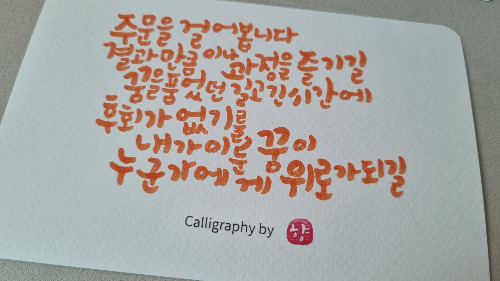 주문을 걸어봅니다
결과만큼이나 과정을 즐기길
꿈을 품었던 길고 긴 시간에
후회가 없기를
내가 이룬 꿈이
누군가에게 위로가 되길
Calligraphy by 향